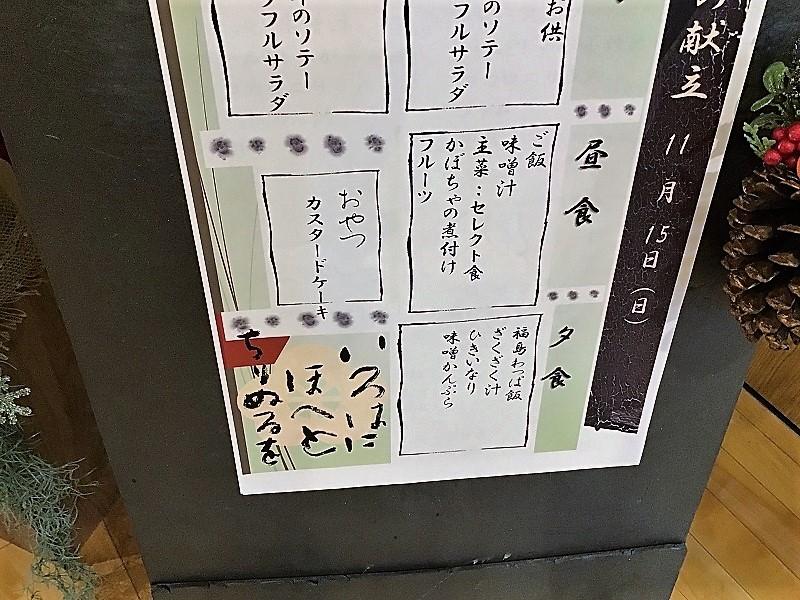 献立
11月15日(日)
お供
のソテー
フルサラダ
のソテー
フルサラダ
昼食
ご飯
味噌汁
主菜：セレクト食
かぼちゃの煮付け
フルーツ
おやつ
カスタードケーキ
夕食
福島わっぱ飯
ざくざく汁
ひきいなり
味噌かんぷら
いろはに
ほへと
ちりぬるを